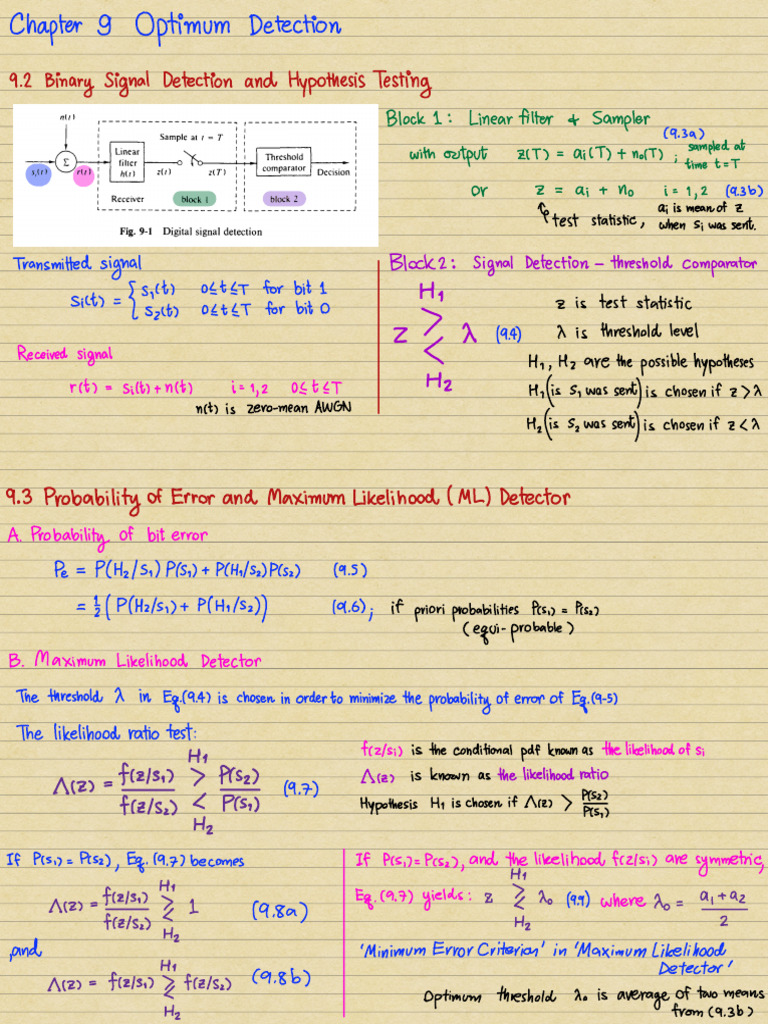 Chapter 9 Optimum Detection
9.2 Binary Signal Detection and Hypothesis Testing
n(t)
Sample at t = T
Σ
Linear filter h(t)
Threshold comparator
si(t)
r(t)
z(t)
z(T)
Decision
Receiver
block 1
block 2
Fig. 9-1 Digital signal detection
Block 1: Linear filter & Sampler
(9.3a)
with output z(T) = ai(T) + no(T) ; sampled at time t=T
or z = ai + no i = 1,2 (9.3b)
test statistic, ai is mean of z when si was sent.
Transmitted signal
si(t) = { s1(t) 0≤t≤T for bit 1
s2(t) 0≤t≤T for bit 0
Received signal
r(t) = si(t) + n(t) i = 1,2 0≤t≤T
n(t) is zero-mean AWGN
Block 2: Signal Detection – threshold comparator
H1
z > < λ (9.4)
H2
z is test statistic
λ is threshold level
H1, H2 are the possible hypotheses
H1 (is s1 was sent) is chosen if z > λ
H2 (is s2 was sent) is chosen if z < λ
9.3 Probability of Error and Maximum Likelihood (ML) Detector
A. Probability of bit error
Pe = P(H2/s1) P(s1) + P(H1/s2) P(s2) (9.5)
= 1/2 ( P(H2/s1) + P(H1/s2)) (9.6); if priori probabilities P(s1) = P(s2)
(equi-probable)
B. Maximum Likelihood Detector
The threshold λ in Eq.(9.4) is chosen in order to minimize the probability of error of Eq.(9-5)
The likelihood ratio test:
H1
Λ(z) = f(z/s1) / f(z/s2) > < P(s2) / P(s1) (9.7)
H2
f(z/si) is the conditional pdf known as the likelihood of si
Λ(z) is known as the likelihood ratio
Hypothesis H1 is chosen if Λ(z) > P(s2) / P(s1)
If P(s1) = P(s2), Eq.(9.7) becomes
H1
Λ(z) = f(z/s1) / f(z/s2) > < 1 (9.8a)
H2
,and
H1
Λ(z) = f(z/s1) > < f(z/s2) (9.8b)
H2
If P(s1) = P(s2), and the likelihood f(z/si) are symmetric,
H1
Eq.(9.7) yields: z > < λo (9.9) where λo = a1 + a2 / 2
H2
'Minimum Error Criterion' in 'Maximum Likelihood
Detector'
Optimum threshold λo is average of two means
from (9.3b)